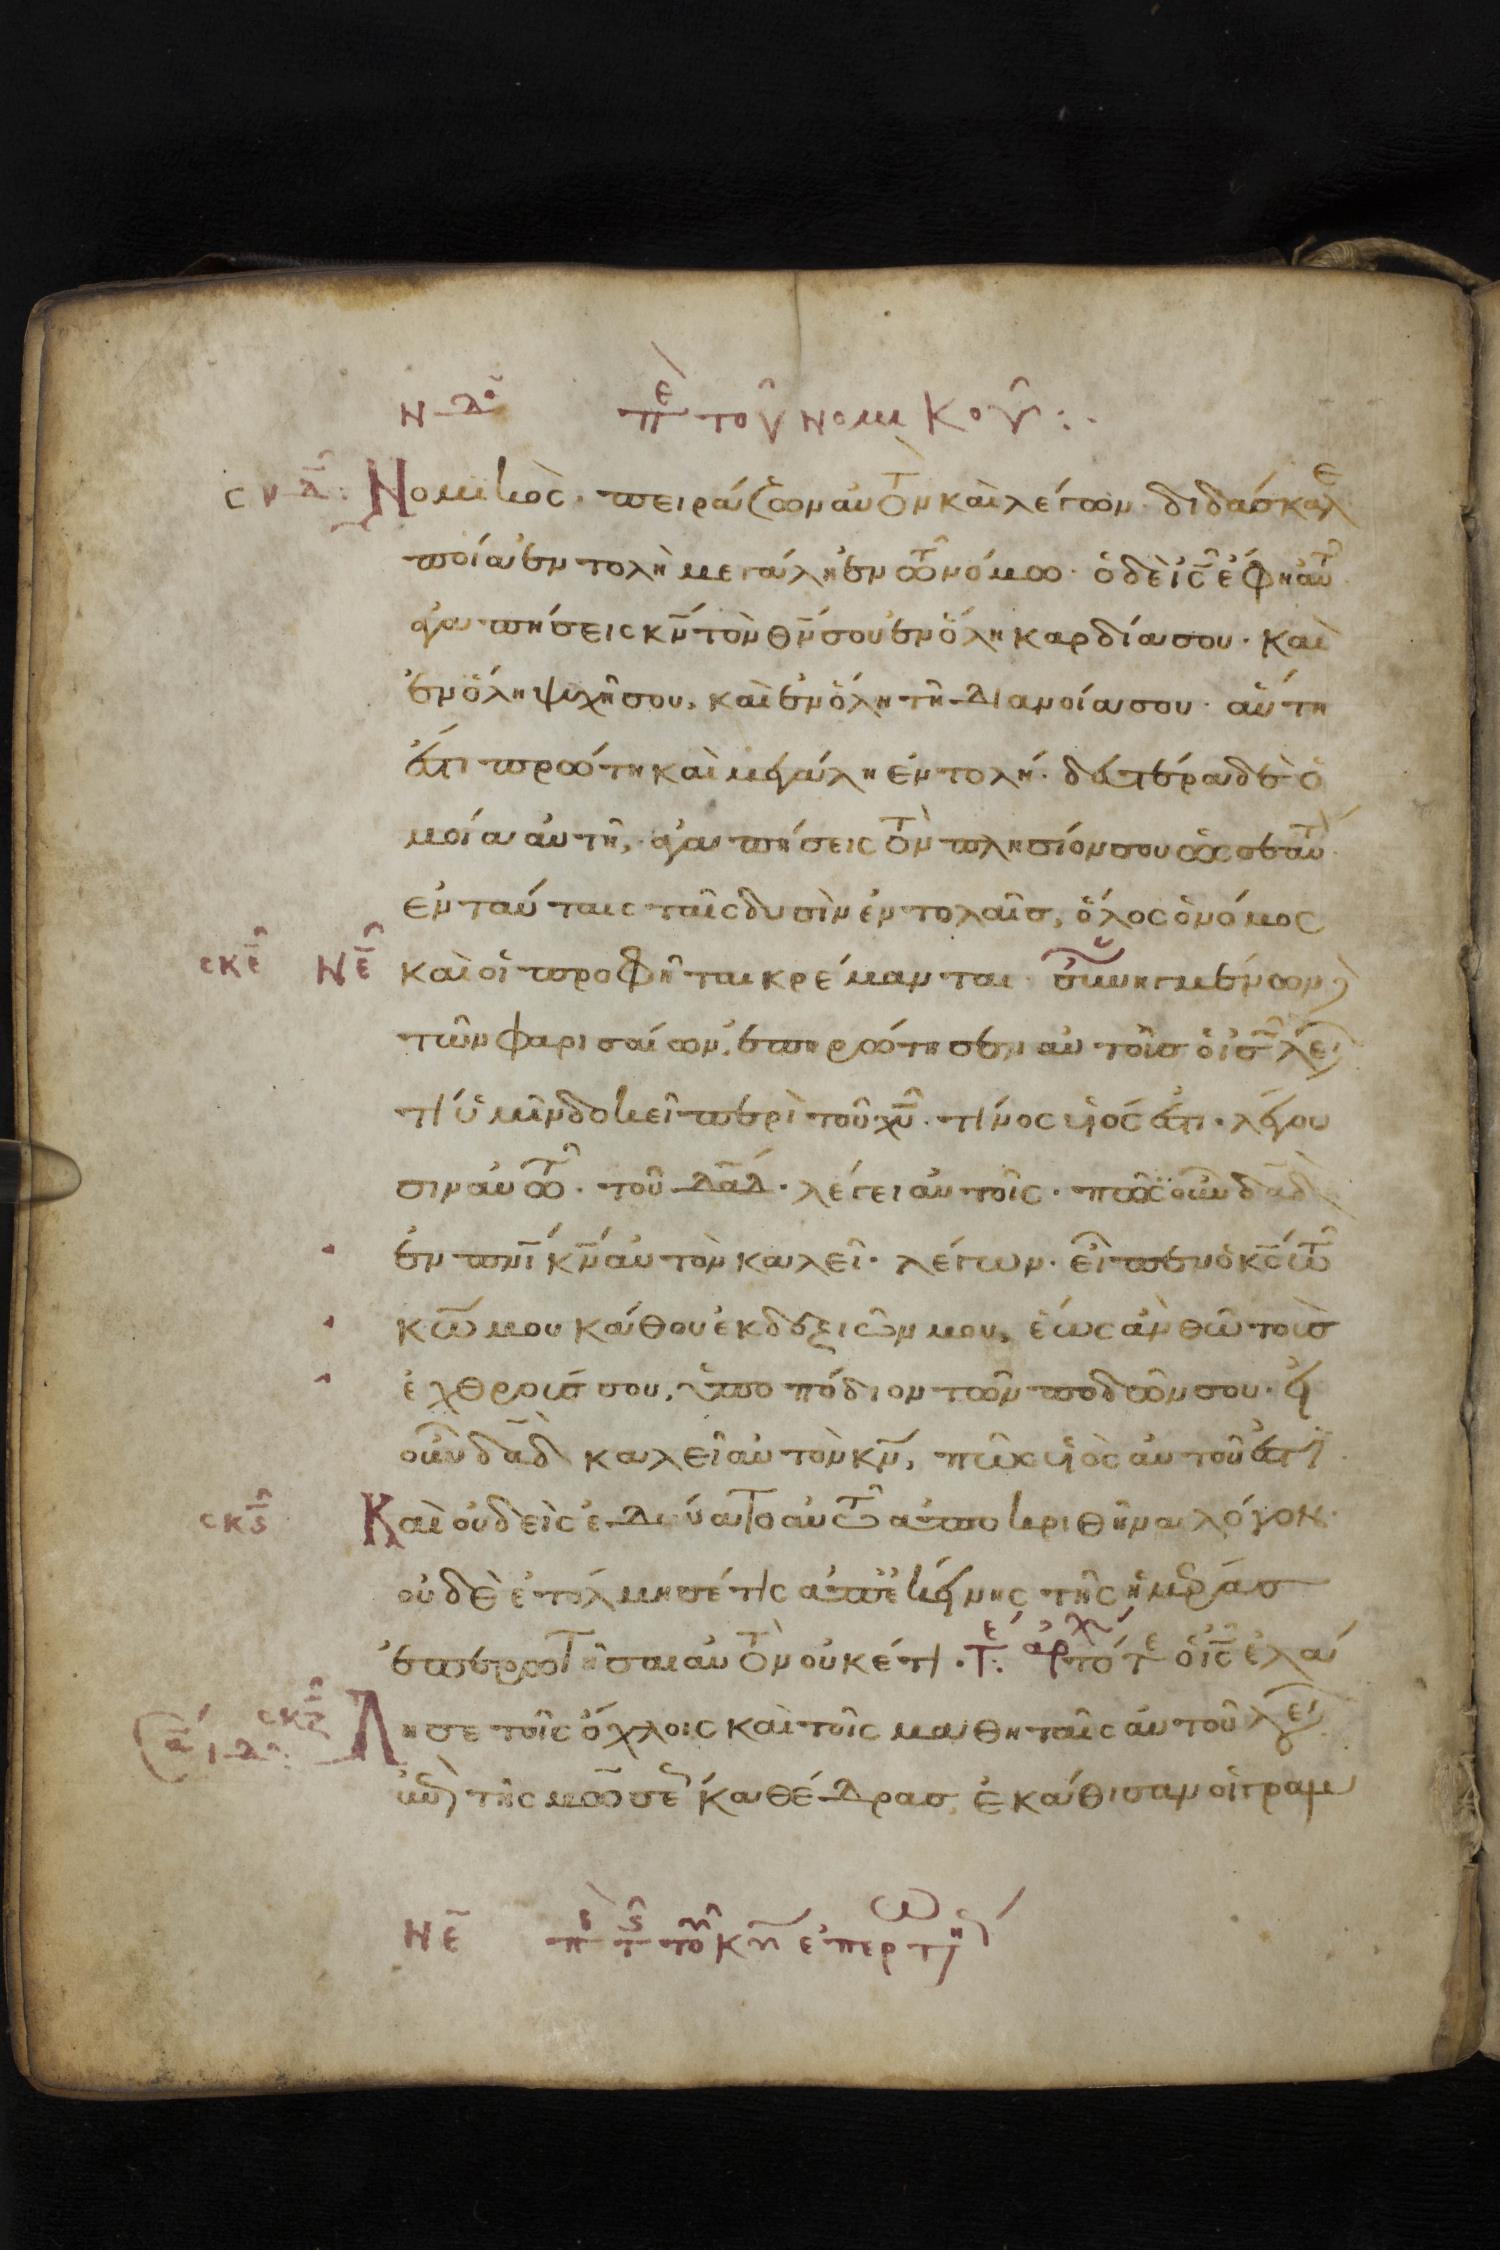 νδ πε τοῦ νομικοῦ :·
σκδ Νομικὸς· πειράζων αὐτὸν καὶ λέγων· διδάσκαλε
ποία ἐντολὴ μεγάλη ἐν τῶ νόμω· ὁ δὲ ις ἔφη αὐτ
ἀγαπήσεις κν τὸν θν σου ἐν ὅλη καρδία σου· καὶ
ἐν ὅλη ψυχῆ σου, καὶ ἐν ὅλη τῆ διανοία σου· αὕτη
ἐστὶ πρώτη καὶ μεγάλη ἐντολή· δευτέρα δὲ ὁ
μοία αὐτῆ, ἀγαπήσεις τὸν πλησίον σου ὡς σεαυτ
ἐν ταύταις ταῖς δυσὶν ἐντολαῖς, ὅλος ὁ νόμος
σκε νε καὶ οἱ προφῆται κρέμανται· συνηγμένων
τῶν φαρισαίων, ἐπηρώτησεν αὐτοῖς ὁ ις λέγ
τί ὑμῖν δοκεῖ περὶ τοῦ χυ· τίνος υἱός ἐστι· λέγου
σιν αὐτῶ· τοῦ δαδ· λέγει αὐτοῖς· πῶς οὖν δαδ
ἐν πνι κν αὐτὸν καλεῖ· λέγων· εἶπεν ὁ κς τῶ
κω μου κάθου ἐκ δεξιῶν μου, ἕως ἂν θῶ τοὺς
ἐχθρούς σου, ὑποπόδιον τῶν ποδῶν σου· εἰ
οὖν δαδ καλεῖ αὐτὸν κν, πῶς υἱὸς αὐτοῦ ἐστί·
σκς Καὶ οὐδεὶς ἐδύνατο αὐτῶ ἀποκριθῆναι λόγον·
οὐδὲ ἐτόλμησέ τις ἀπ' ἐκείνης τῆς ἡμέρας
ἐπερωτῆσαι αὐτὸν οὐκέτι· τε ἀρχ τότε ὁ ις ἐλά
σκζ Λησε τοῖς ὄχλοις καὶ τοῖς μαθηταῖς αὐτοῦ λέγ
ἐπὶ τῆς μωσέ καθέδρας ἐκάθισαν οἱ γραμ
νε πε τ το κυ ἐπερωτή